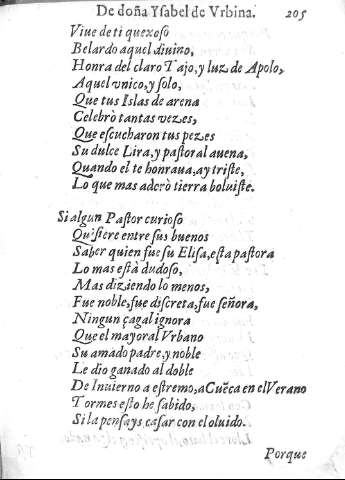 De doña Ysabel de Vrbina. 205
Viue de ti quexoso
Belardo aquel diuino,
Honra del claro Tajo, y luz de Apolo,
Aquel vnico, y solo,
Que tus Islas de arena
Celebrò tantas vezes,
Que escucharon tus pezes
Su dulce Lira, y pastoral auena,
Quando el te honraua, ay triste,
Lo que mas adorò tierra boluiste.
Si algun Pastor curioso
Quisiere entre sus buenos
Saber quien fue su Elisa, esta pastora
Lo mas està dudoso,
Mas diziendo lo menos,
Fue noble, fue discreta, fue señora,
Ningun çagal ignora
Que el mayoral Vrbano
Su amado padre, y noble
Le dio ganado al doble
De Inuierno a estremo, a Cuẽca en el Verano
Tormes esto he sabido,
Si la pensays, casar con el oluido.
Porque